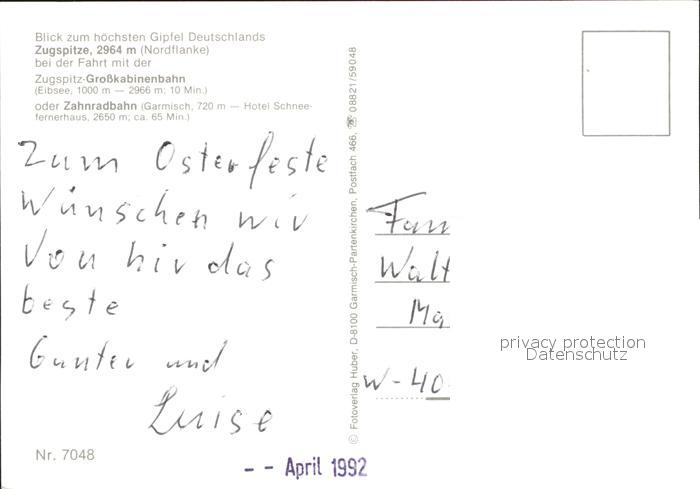 Blick zum höchsten Gipfel Deutschlands
Zugspitze, 2964 m (Nordflanke)
bei der Fahrt mit der
Zugspitz-Großkabinenbahn
(Eibsee, 1000 m — 2966 m; 10 Min.)
oder Zahnradbahn (Garmisch, 720 m — Hotel Schnee-
fernerhaus, 2650 m; ca. 65 Min.)
Zum Osterfeste
Wünschen wir
Von hir das
beste
Gunter und
Luise
Nr. 7048
© Fotoverlag Huber, D-8100 Garmisch-Partenkirchen, Postfach 466, ☏ 08821/59048
Fam
Walt
Ma
W-40
privacy protection
Datenschutz
- - April 1992